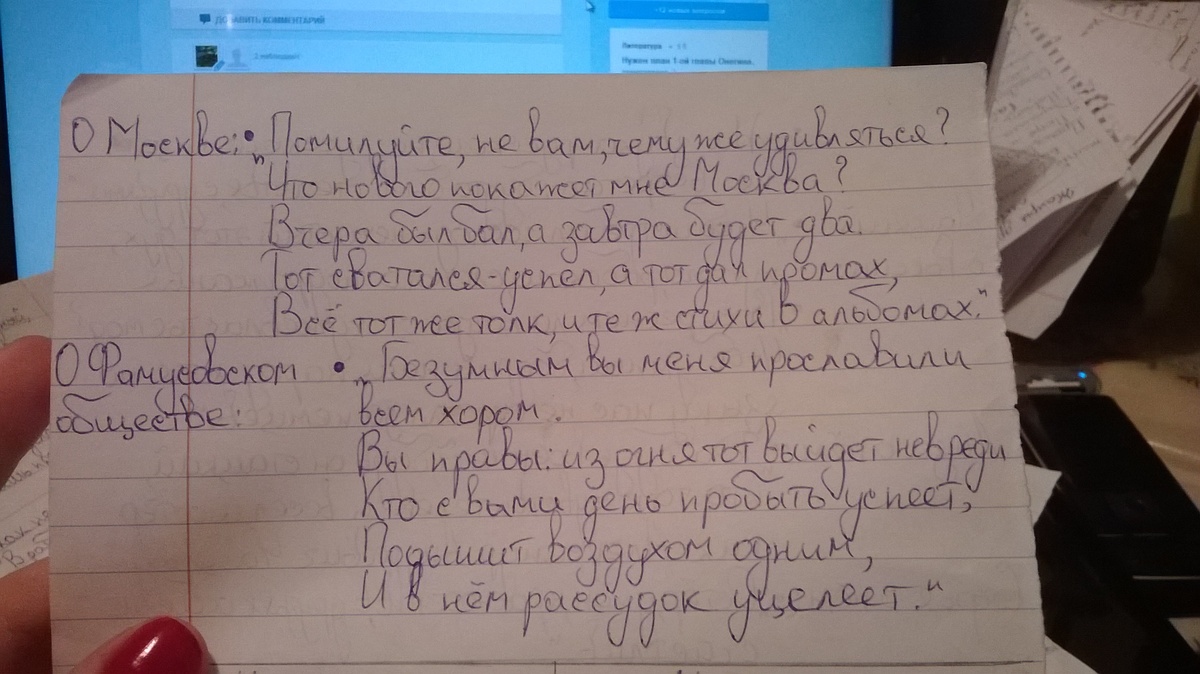 ДОБАВИТЬ КОММЕНТАРИЙ
Литература
Нужен план 1-ой главы Онегина.
О Москве: • Помилуйте, не вам, чему же удивляться?
"Что нового покажет мне Москва?
Вчера был бал, а завтра будет два.
Тот сватался - успел, а тот дал промах,
Всё тот же толк, и те ж стихи в альбомах."
О Фамусовском • „Безумным вы меня прославили
обществе: всем хором.
Вы правы: из огня тот выйдет невреди
Кто с вами день пробыть успеет,
Подышит воздухом одним,
И в нём рассудок уцелеет."